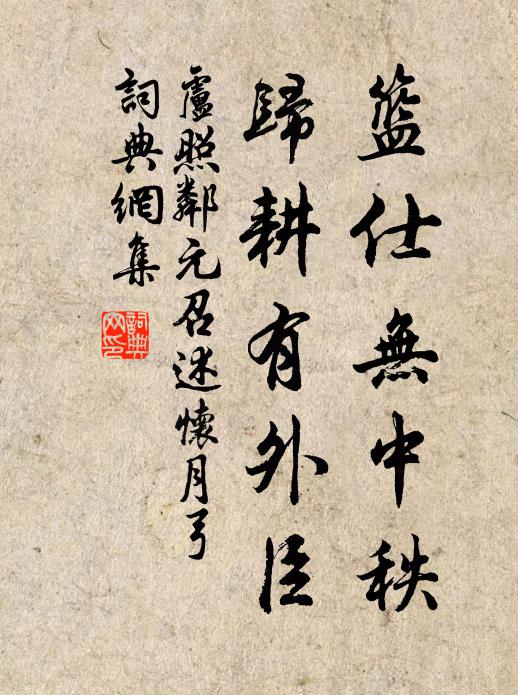 籃仕無中秩
歸耕有外臣
盧照鄰元召述懷月弓
詞典網集
詞典網印